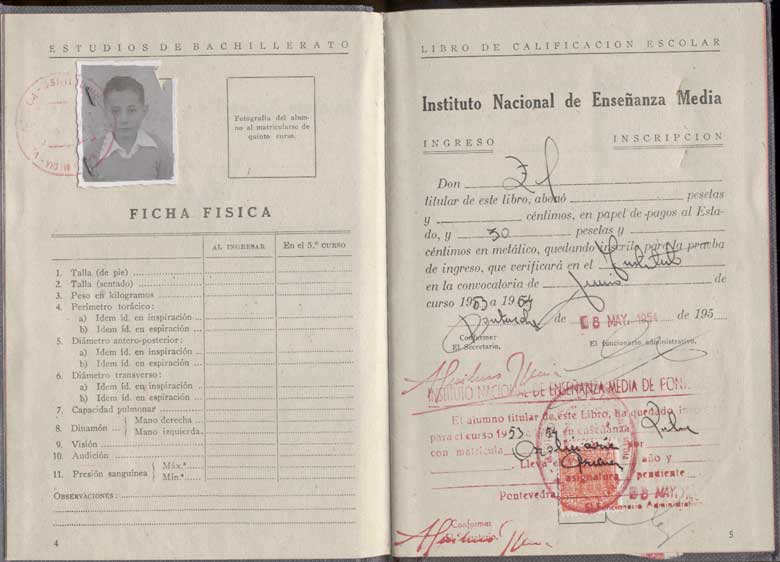 ESTUDIOS DE BACHILLERATO
Fotografía del alum-
no al matricularse de
quinto curso.
FICHA FISICA
AL INGRESAR
En el 5.º CURSO
1. Talla (de pie)
2. Talla (sentado)
3. Peso en kilogramos
4. Perímetro torácico:
a) Idem íd. en inspiración
b) Idem íd. en espiración
5. Diámetro antero-posterior:
a) Idem íd. en inspiración
b) Idem íd. en espiración
6. Diámetro transverso:
a) Idem íd. en inspiración
b) Idem íd. en espiración
7. Capacidad pulmonar
8. Dinamón. Mano derecha
Mano izquierda.
9. Visión
10. Audición
11. Presión sanguínea Máx.ª
Mín.ª
OBSERVACIONES:
4
LIBRO DE CALIFICACION ESCOLAR
Instituto Nacional de Enseñanza Media
INGRESO INSCRIPCION
Don El
titular de este libro, abonó pesetas
y céntimos, en papel de pagos al Esta-
do, y 30 pesetas y
céntimos en metálico, quedando inscrito para la prueba
de ingreso, que verificará en el Instituto
en la convocatoria de Junio de
curso 1953 a 1954
Pontevedra de 8 MAY. 1954 de 195
Conforme:
El Secretario, El funcionario administrativo,
INSTITUTO NACIONAL DE ENSEÑANZA MEDIA DE PON
El alumno titular de este Libro, ha quedado
para el curso 1953 54 en enseñanza
con matrícula Ordinaria por
Lleva año y
asignatura pendiente
Pontevedra 8 MAY.
Conforme El Funcionario Administrativo
El Secretario,
5